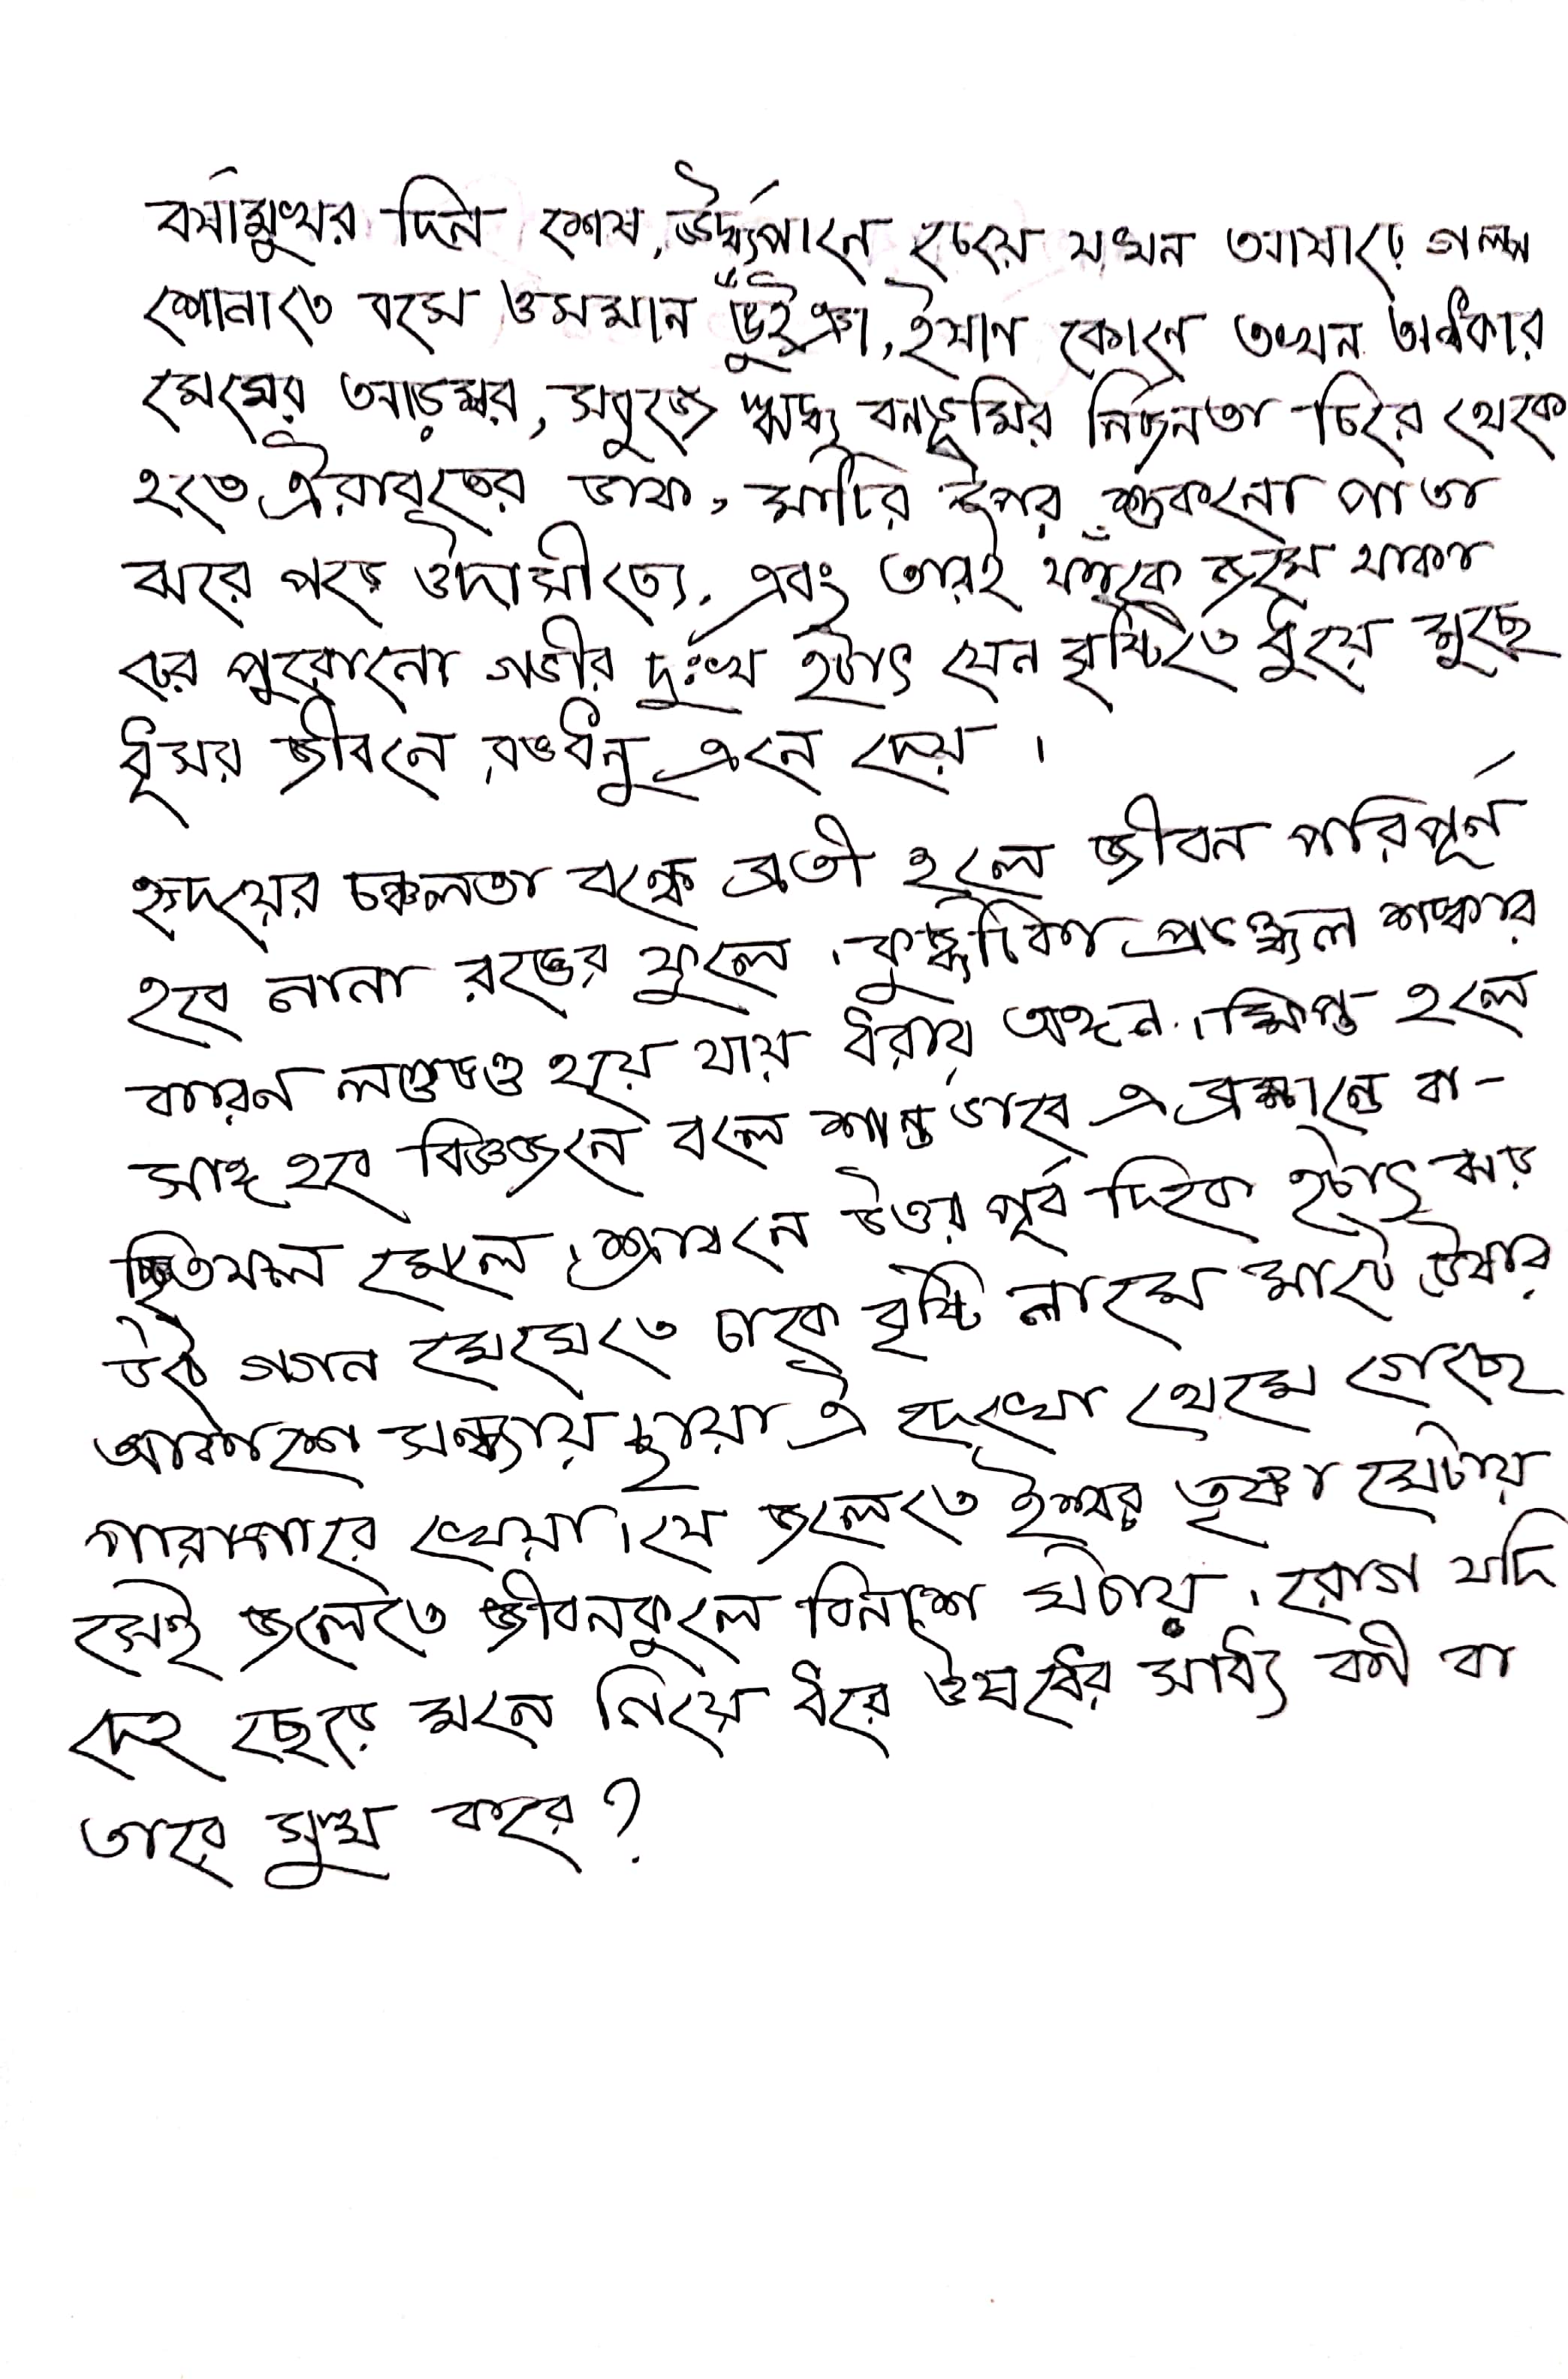 বর্ষামুখর দিন শেষে, ঊর্দ্ধ্যপানে চেয়ে যখন আষাঢ়ে গল্প
শোনাতে বসে ওসমান ভুঁইঞা, ইষাণ কোণে তখন অন্ধকার
মেঘের আড়ম্বর, সবুজে ঋদ্ধ বনভূমির নির্জনতা চিরে থেকে
হতে ঐরাবতের ডাক, মাটির উপর শুকনো পাতা
ঝরে পড়ে ঔদাসীত্যে, এবং তারই ফাঁকে জমে থাকা
ঢের পুরোনো গভীর দুঃখ হঠাৎ যেন বৃষ্টিতে ধুয়ে মুছে
ধূসর জীবনে রঙধনু এনে দেয়।
হৃদয়ের চঞ্চলতা বন্ধে ব্রতী হলে জীবন পরিপূর্ণ
হবে নানা রঙের ফুলে। কুজ্ঝটিকা প্রাঞ্জল শঙ্কার
কারণ লণ্ডভণ্ড হয়ে যায় ধরায় অঙ্গন। ক্ষিপ্ত হলে
সাঙ্গ হবে বিজ্ঞজনে বলে শান্ত ভাবে এ ব্রহ্মান্ডে বা-
স্থিতফল মেলে। শ্রাবনে উত্তর পূর্ব দিকে হঠাৎ ঝড়
উঠে গগন মেঘেতে ঢাকে বৃষ্টি নামে মাঠে উষার
আকাশে সন্ধ্যায় ছায়া ঐ দেখো থেমে গেছে
পারাপারে খেয়া। যে জলেতে ইশ্বর তৃষ্ণা মেটায়
সেই জলেতে জীবনকুলে বিনাশ ঘটায়। রোগ যদি
দেহ ছেড়ে মনে গিয়ে ধরে ঔষধের সাধ্য কী বা
তারে সুস্থ করে?